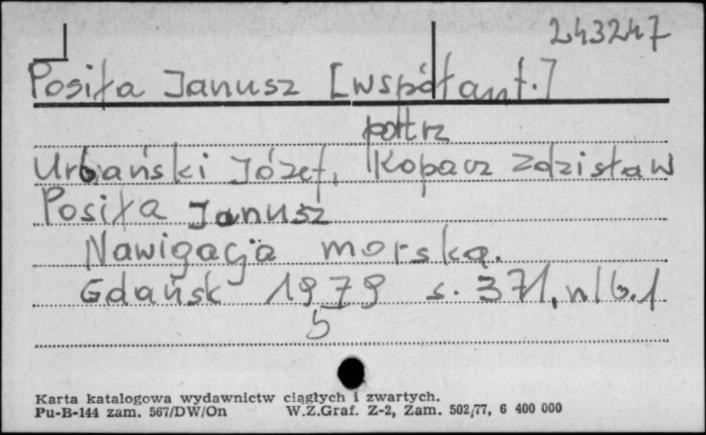 243247
Posiła Janusz [współaut.]
patrz
Urbański Józef, Kopacz Zdzisław
Posiła Janusz
Nawigacja morska.
Gdańsk 1979 s. 371, nlb. 1
5
Karta katalogowa wydawnictw ciągłych i zwartych.
Pu-B-144 zam. 567/DW/On W.Z.Graf. Z-2, Zam. 502/77, 6 400 000